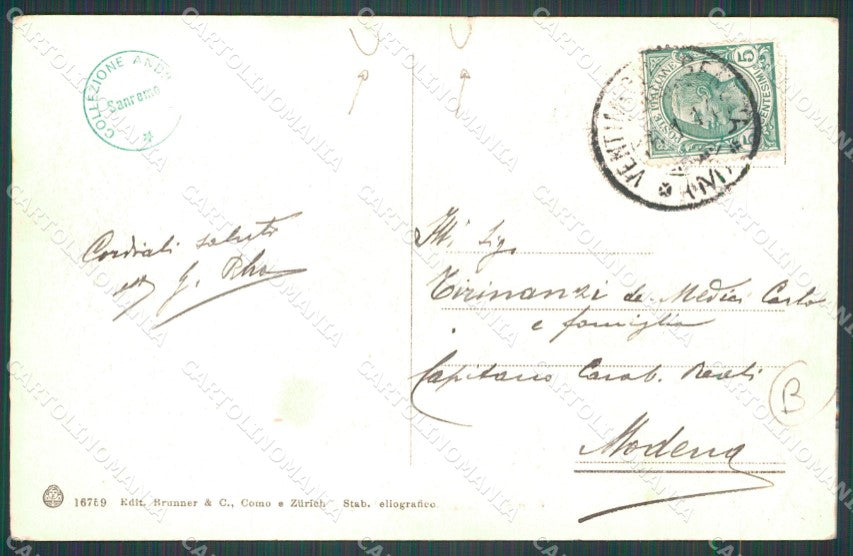 COLLEZIONE AND
Sanremo
Cordiali saluti
G. Rho
POSTE ITALIANE
5
CENTESIMI
VENTI
Ill. Sig.
Tirinanzi de Medici Carlo
e famiglia
Capitano Carab. Reali
Modena
B
16759 Edit. Brunner & C., Como e Zürich Stab. eliografico
CARTOLINOMANIA